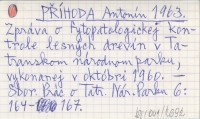 PŘÍHODA Antonín 1963.
Zpráva o fytopatologickej kon-
trole lesných drevín v Ta-
transkom národnom parku,
vykonanej v októbri 1960. —
Sbor. Prác o Tatr. Nár. Parku 6:
164-167.